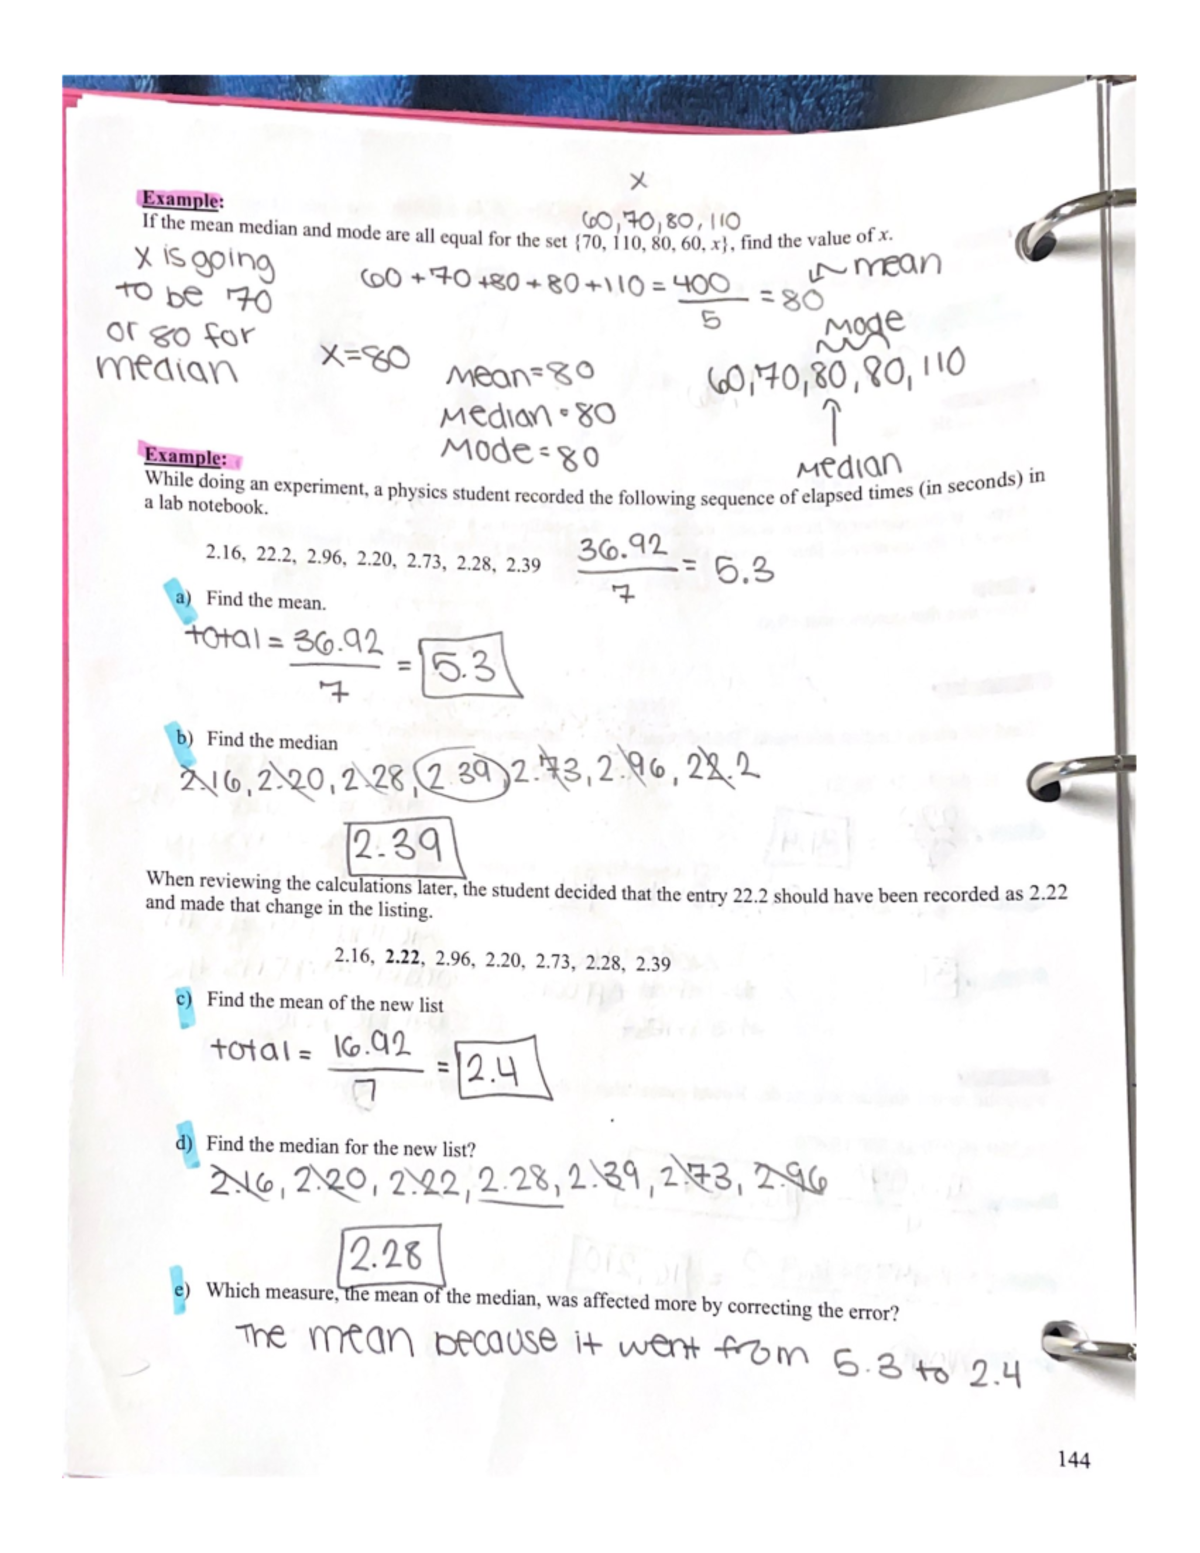 x
Example:
60,70,80,110
If the mean median and mode are all equal for the set {70, 110, 80, 60, x}, find the value of x.
x is going
to be 70
or 80 for
median
60+70+80+80+110=400
5
=80
mean
x=80
Mean=80
Median=80
Mode=80
Mode
60,70,80,80,110
↑
Median
Example:
While doing an experiment, a physics student recorded the following sequence of elapsed times (in seconds) in
a lab notebook.
2.16, 22.2, 2.96, 2.20, 2.73, 2.28, 2.39
36.92
7
= 5.3
a) Find the mean.
total = 36.92
7
= 5.3
b) Find the median
2.16, 2.20, 2.28, 2.39, 2.73, 2.96, 22.2
2.39
When reviewing the calculations later, the student decided that the entry 22.2 should have been recorded as 2.22
and made that change in the listing.
2.16, 2.22, 2.96, 2.20, 2.73, 2.28, 2.39
c) Find the mean of the new list
total = 16.92
7
= 2.4
d) Find the median for the new list?
2.16, 2.20, 2.22, 2.28, 2.39, 2.73, 2.96
2.28
e) Which measure, the mean of the median, was affected more by correcting the error?
The mean because it went from 5.3 to 2.4
144